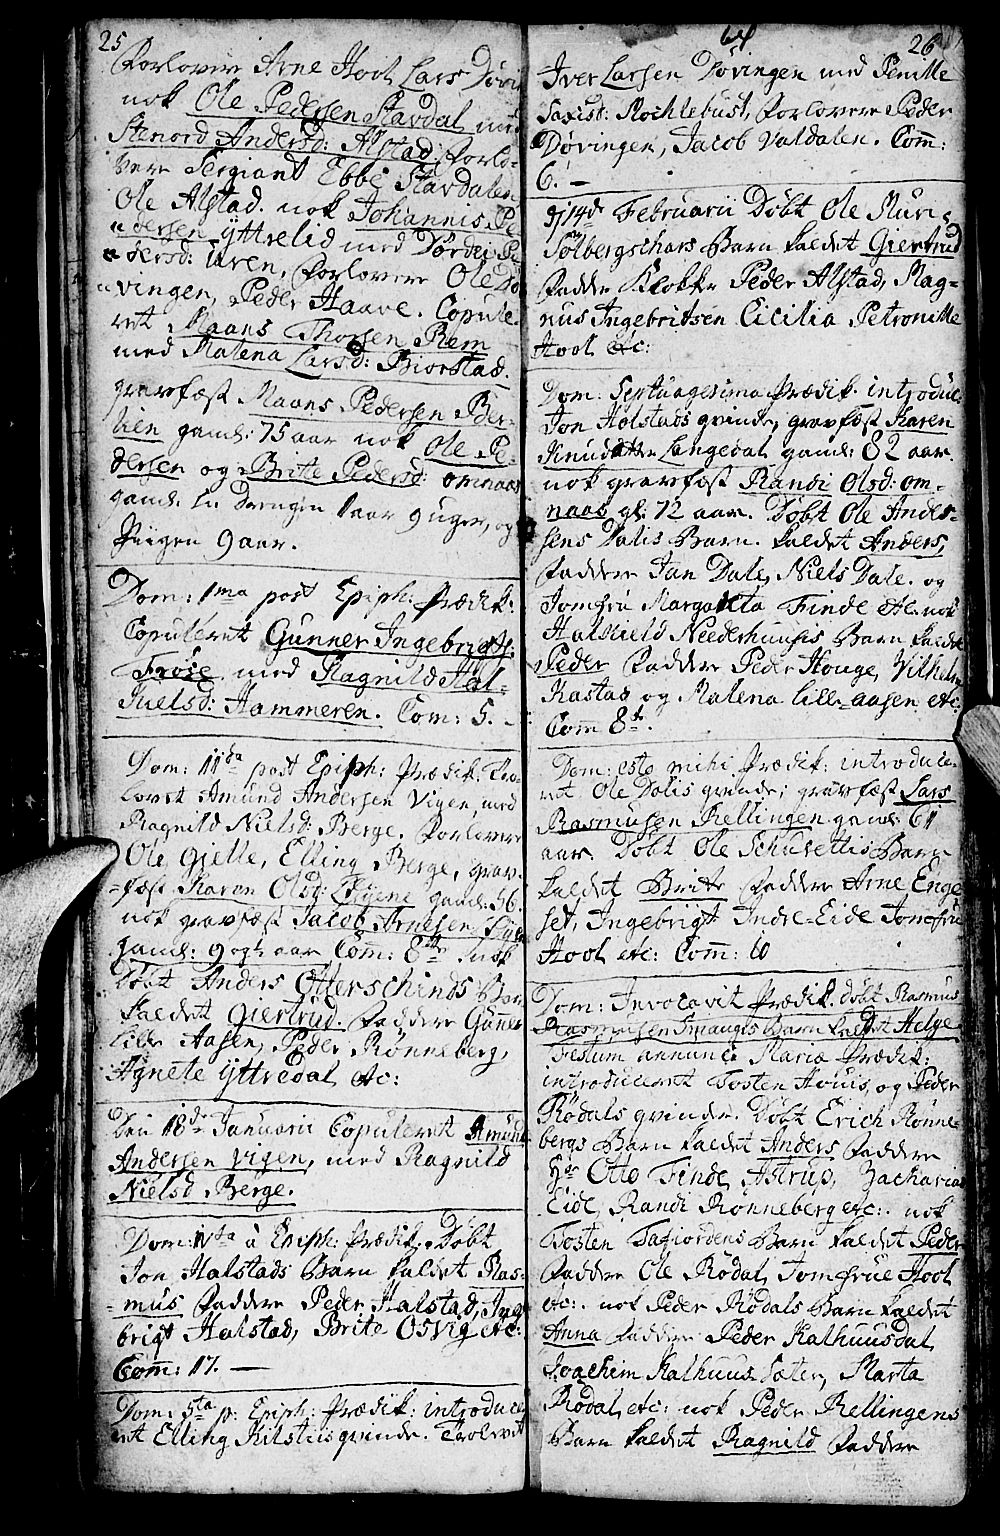 25
Forlovere Arne Hoel Lars Døvi
nok Ole Pedersen Stavdal med
Stenord Andersd: Alstad, Forlo-
vere Sergiant Ebbe Stavdalen
Ole Alstad. nok Johannis Pe
dersen yttrelid med Dordei Pe
dersd: Uren, Forlovere Ole Dø
vingen, Peder Haave. Copule
ret Maans Thorsen Rem
med Malena Larsd: Biorstad.
gravfæst Maans Pedersen Ber-
lien gaml: 75 aar nok Ole Pe-
dersen og Brite Pedersd: omnaas
gaml. En Drengen 1 aar 9 uger, og
Piigen 9 aar.
Dom: 1ma post Epiph: Prædik:
Copuleret Gunner Ingebrigts:
Frøse med Ragnild Hal-
kields: Hammeren. Com: 5.
Dom: 11da post Epiph: Prædik: Tro-
lovet Amund Andersen Vigen, med
Ragnild Nielsd: Berge. Forlovere
Ole Gielle, Elling Berge, grav-
fæst Karen Olsd: gaml: 56.
nok gravfæst Jacob Arnesen
gaml: 90 aar Com: 8te nok
Døbt Anders Otterschinds Barn
kaldet Giertrud. Faddere Guner
lille Aasen, Peder Rønneberg,
Agnete yttredal etc:
Den 18de Januarii Copuleret Amund
Andersen Vigen, med Ragnild
Nielsd Berge.
Dom: IVta à Epiph: Prædik: Døbt
Jon Halstads Barn kaldet Ras-
mus Faddere Peder Halstad, Inge
brigt Halstad, Brite Osvig etc:
Com: 17. —
Dom: 5ta p: Epiph: Prædik: introduce
ret Elling Kilstiis qvinde. Trolovet
64
26
Iver Larsen Døvingen med Penille
Saxisd: Mochlebust, Forlovere Peder
Døvingen, Jacob Valdalen. Com:
6. —
D: 14de Februarii Døbt Ole Muri
Sølbergschars Barn kaldet Giertrud
Faddere Klokker Peder Alstad, Mag-
nus Ingebritsen Cicilia Petronille
Hoel etc:
Dom: Septuagesima Prædik. introduc:
Jon Holstads qvinde, gravfæst Karen
Knudatter Langedal gaml: 82 aar.
nok gravfæst Randi Olsd: om-
naas gl: 72 aar. Døbt Ole Ander-
sens Dalis Barn. kaldet Anders,
Faddere Jan Dale, Niels Dale. og
Jomfru Margareta Finde etc. nok
Halkield Neederhuusis Barn kaldet
Peder Faddere Peder Houge, Vilhelm
Kastas og Malena lille-aasen etc:
Com 8te.
Dom: esto mihi Prædik: introduce-
ret Ole Dalis qvinde; gravfæst Lars
Rasmusen Rellingen gaml: 61
aar. Døbt Ole Schusettis Barn
kaldet Brite Faddere Arne Enge
set, Ingebrigt Indre-Eide Jomfrue
Hoel etc: Com: 10
Dom: Invocavit Prædik. døbt Rasmus
Rasmussen Smaugis Barn kaldet Helge
Festum annunc: Mariæ Prædik:
introduceret Tosten Houis, og Peder
Rødals qvinde. Døbt Erich Rønne-
bergs Barn kaldet Anders Faddere
Hr Otto Finde Astrup, Zacharias
Eide, Randi Rønneberg etc: nok
Tosten Tafiordens Barn kaldet Peder
Faddere Ole Rødal, Jomfrue Hoel
etc: nok Peder Rødals Barn kaldet
Anna Faddere Peder Kalhuusdal,
Joachim Kalhuus Sæter, Marta
Rødal, etc: nok Peder Rellingens
Barn kaldet Ragnild Faddere